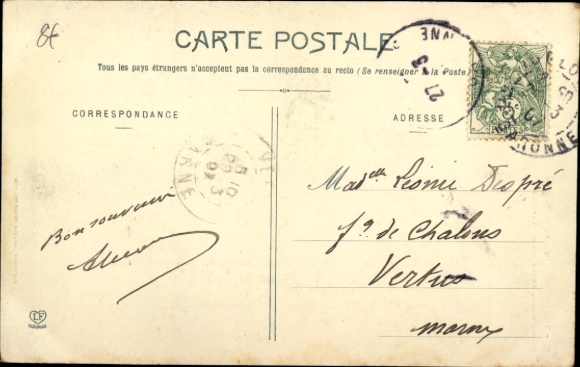 8f
CARTE POSTALE
Tous les pays étrangers n'acceptent pas la correspondance au recto (Se renseigner à la Poste)
CORRESPONDANCE
ADRESSE
MARNE
5 10
Bon souvenir
Madelle Léonie Després
fg de Chalons
Vertus
Marne
LF